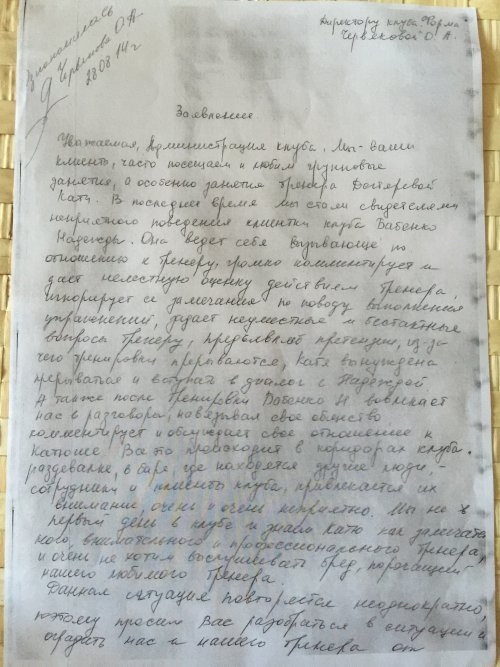 Ознакомилась
Червякова О.А.
28.08.14г
Директору клуба Форма
Червяковой О. А.
Заявление
Уважаемая, Администрация клуба. Мы - Ваши
клиенты, часто посещаем и любим групповые
занятия, а особенно занятия тренера Дегтеревой
Кати. В последнее время мы стали свидетелями
неприятного поведения клиентки клуба Батенко
Надежды. Она ведет себя вызывающе по
отношению к тренеру, громко комментирует и
даст нелестную оценку действиям тренера,
игнорирует ее замечания по поводу выполнения
упражнений, задает неуместные и бестактные
вопросы тренеру, предъявляет претензии, из-за
чего тренировки прерываются, Катя вынуждена
прерываться и вступать в диалог с Надеждой.
А также после тренировки Батенко Н вовлекает
нас в разговоры, навязывая свое общество
комментирует и обсуждает свое отношение к
Катюше. Все это происходит в коридорах клуба,
раздевалке, в баре где находятся другие люди, -
сотрудники и клиенты клуба, привлекается их
внимание, очень и очень неприятно. Мы не
первый день в клубе и знаем Катю как замечате
ного, внимательного и профессионального тренера,
и очень не хотим выслушивать бред, порочащий
нашего любимого тренера.
Данная ситуация повторяется неоднократно,
поэтому просим Вас разобраться в ситуации и
оградить нас и нашего тренера от